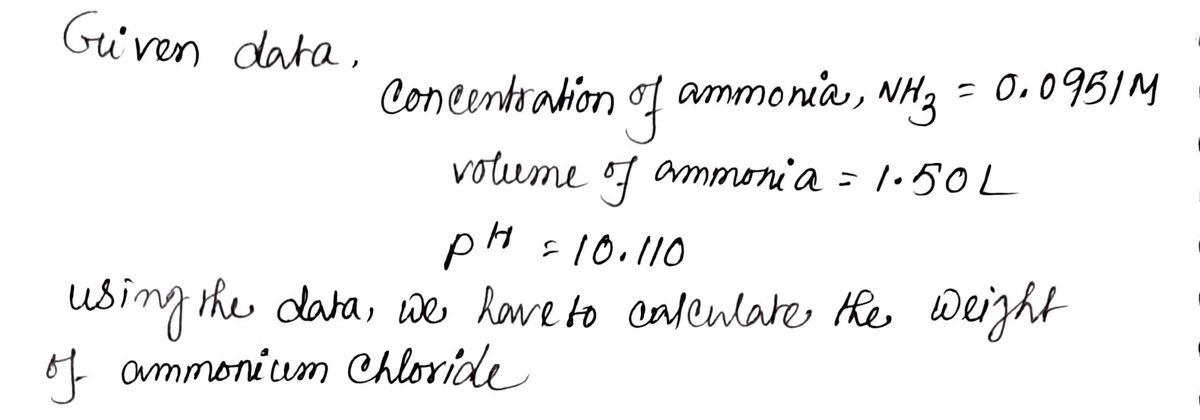 Given data,
Concentration of ammonia, NH3 = 0.0951M
volume of ammonia = 1.50L
pH = 10.110
using the data, we have to calculate the weight
of ammonium Chloride